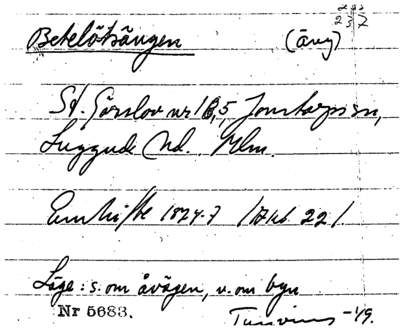 Betelöksängen (äng)
St Görslöv nr 18, 5, Jonstorps sn,
Luggude hd. Mlm.
Enskifte 1824-7 /Akt 22/
Läge: s. om åvägen, v. om byn
Nr 5683. -49.